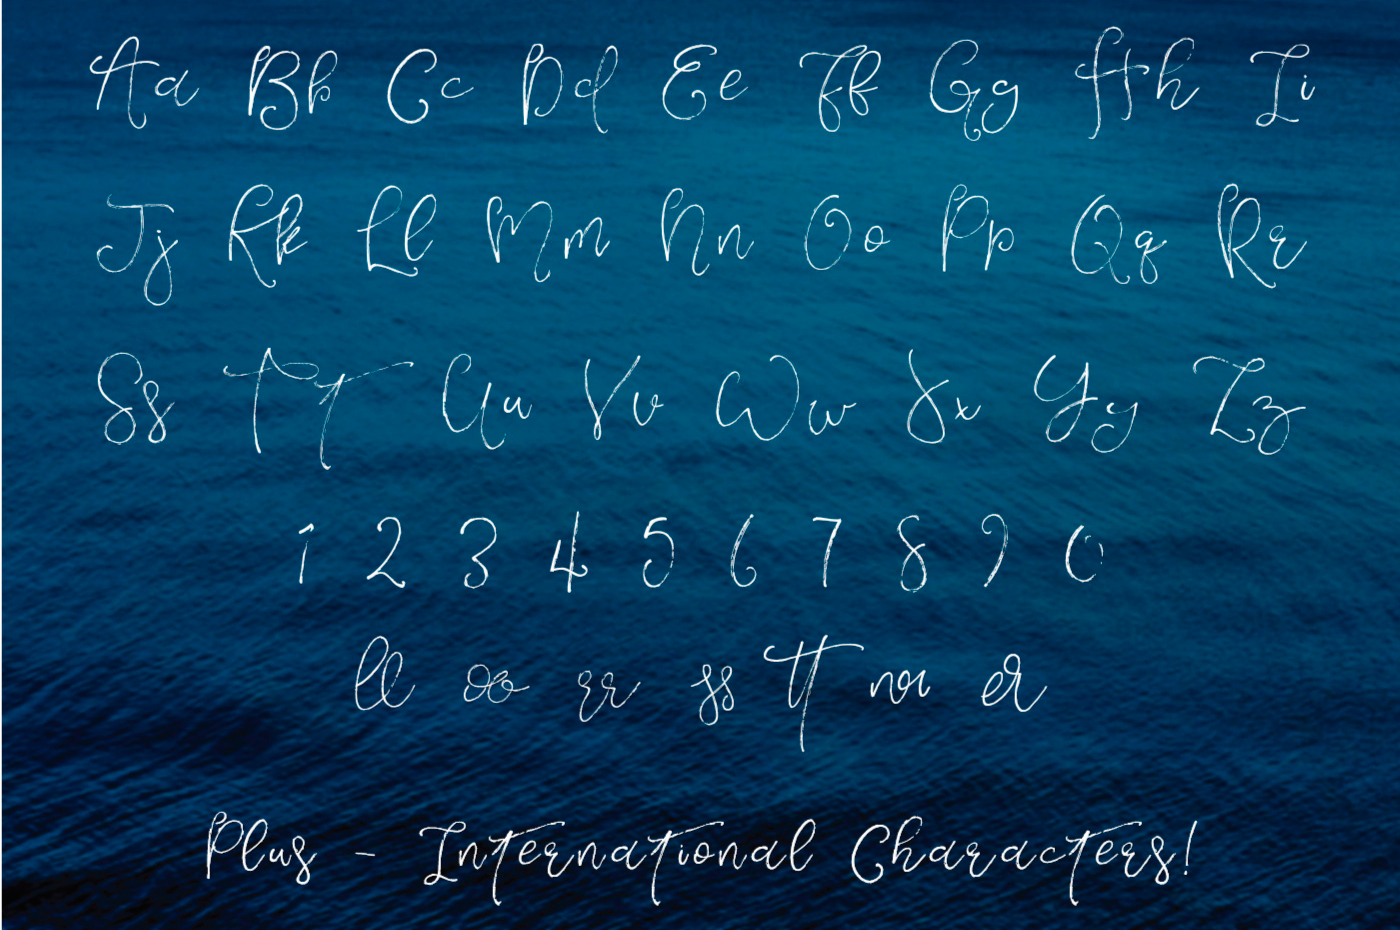 Aa Bb Cc Dd Ee Ff Gg Hh Ii
Jj Kk Ll Mm Nn Oo Pp Qq Rr
Ss Tt Uu Vv Ww Xx Yy Zz
1 2 3 4 5 6 7 8 9 0
ll oo rr ss tt or er
Plus - International Characters!